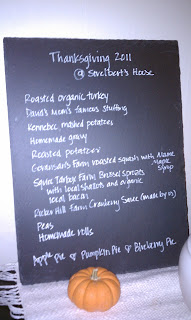 Thanksgiving 2011
@ Serelbert's House
Roasted organic turkey
David's Mom's famous stuffing
Kennebec mashed potatoes
Homemade gravy
Roasted potatoes
Farm roasted squash with Maine
maple
syrup
Squire Tarbox Farm Brussel sprouts
with local shallots and organic
local bacon
Ricker Hill Farm Cranberry Sauce (made by us)
Peas
Homemade rolls
Apple Pie & Pumpkin Pie & Blueberry Pie